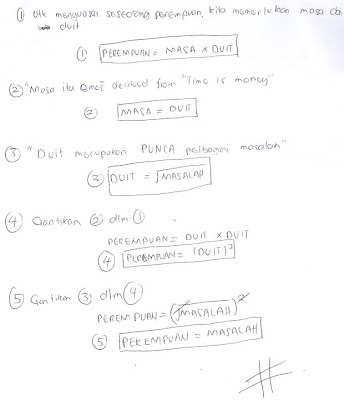 ① Utk menguasai seseorang perempuan, kita memerlukan masa dan
duit
① PEREMPUAN = MASA x DUIT
② "Masa itu emas" derived from "Time is money"
② MASA = DUIT
③ "Duit merupakan PUNCA pelbagai masalah"
③ DUIT = √MASALAH
④ Gantikan ② dlm ①
PEREMPUAN = DUIT x DUIT
④ PEREMPUAN = (DUIT)²
⑤ Gantikan ③ dlm ④
PEREMPUAN = (√MASALAH)²
⑤ PEREMPUAN = MASALAH